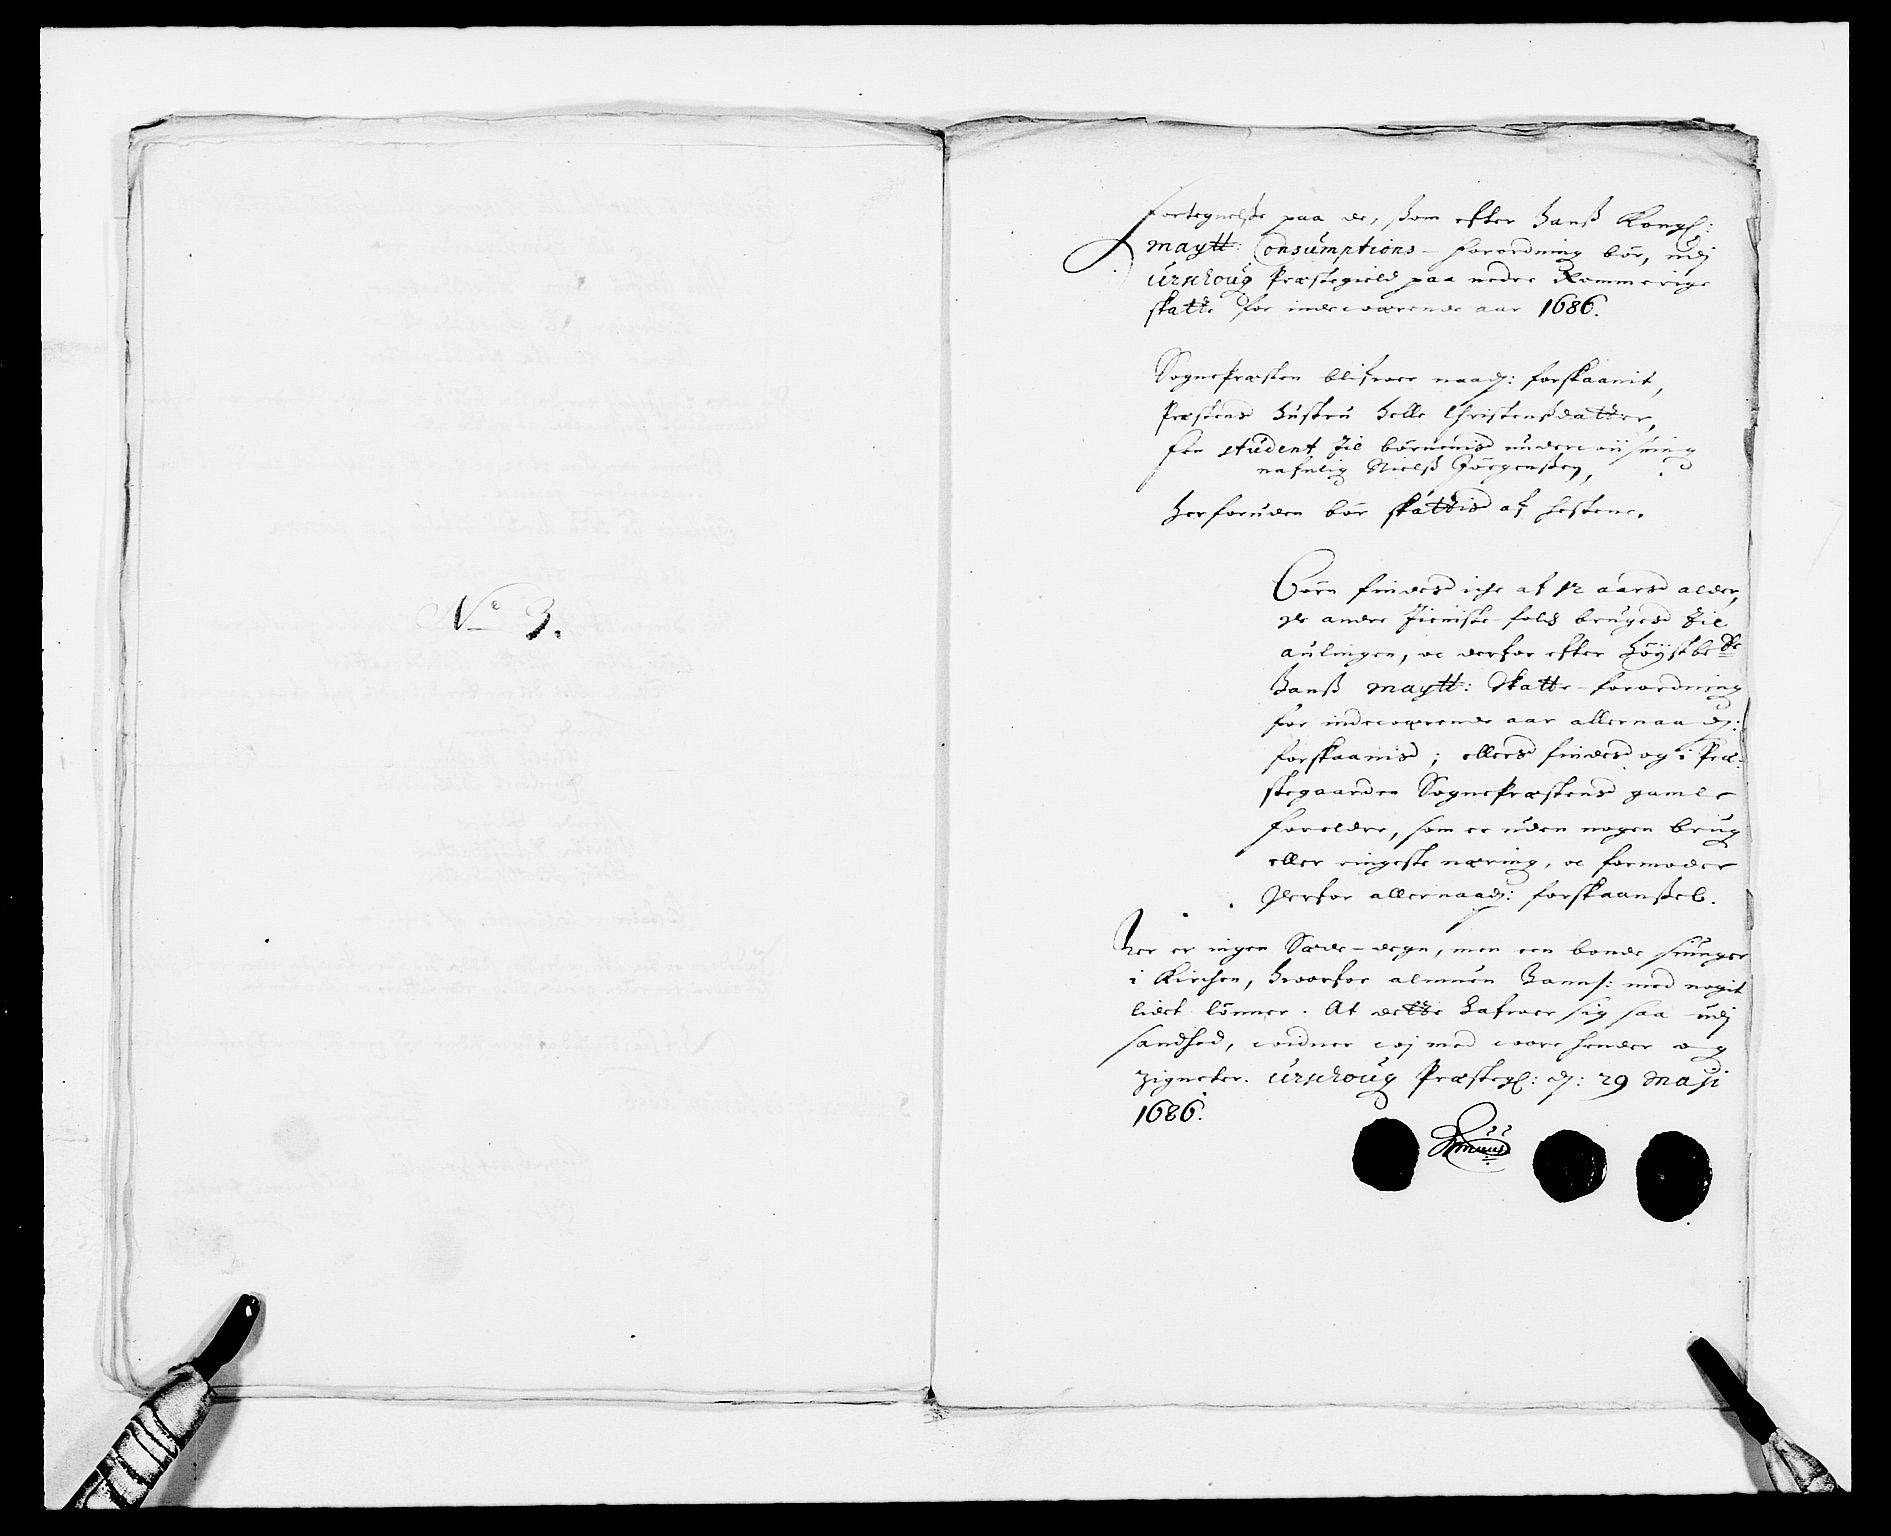 No 3.
Fortegnelsse paa de, ssom efter Hanss Kongl:
maytt: Consumptions-forordning bör, udj
Urschoug Præstegield paa nedre Rommerige
skatte for indeværende aar 1686.
Sognepræsten blifver naadj: forskaanit,
Præstens hustru Helle Christenssdatter,
Een student til börnenis underviisning
nafnlig Nielss Jörgenssen,
Herforuden bör skattis af hestene.
Börn findes iche af 12 aars alder,
de andre tieniste-folch bruges til
aulingen, oc derfor efter höystbe de
Hanss maytt: skatte-forordning
for indeværende aar allernaadj:
forskaanis; ellers findes og i Præ-
stegaarden Sognepræstens gamle
foreldre, som er uden nogen brug
eller ringeste næring, oc formoder
derfor allernaadj: forskaanssel.
Her er ingen Sæde-degn, men een bonde siunger
i Kirchen, hvorfor almuen hannf: med nogit
lidet lönner. At dette hafver sig saa udj
sandhed, vidner vj med vore hender og
zigneter. Urschoug Præstegl: dj: 29 Maji
1686.